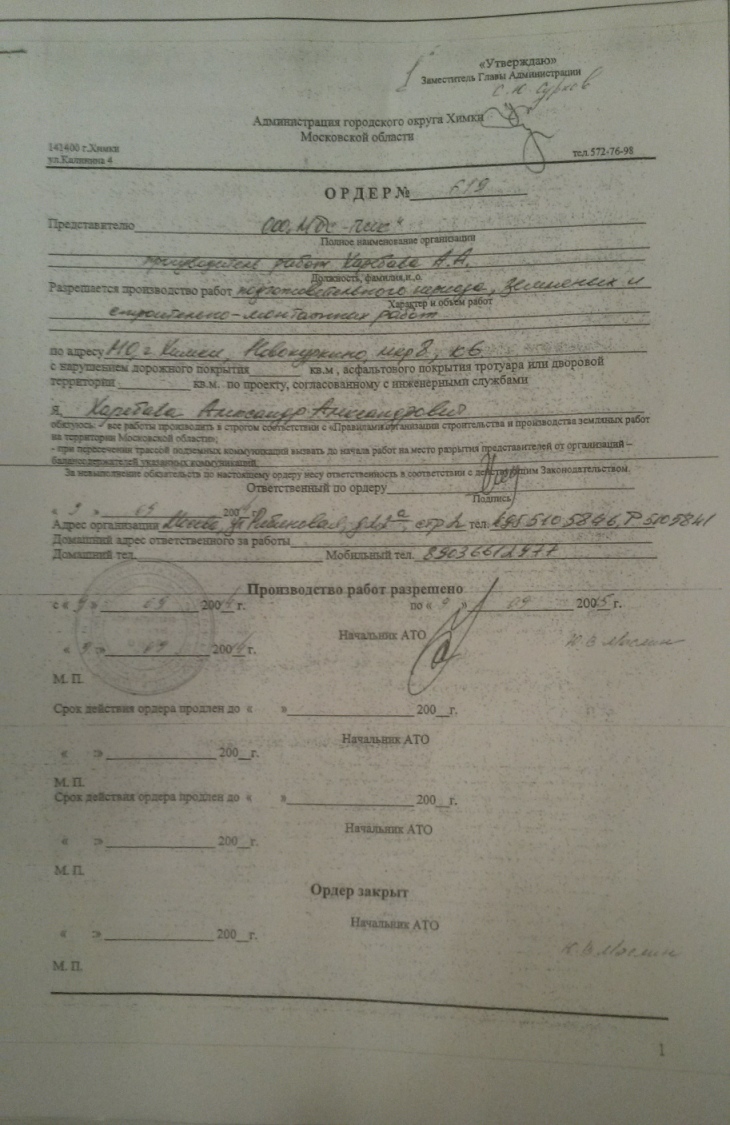 «Утверждаю»
Заместитель Главы Администрации
С.Н. Сурков
Администрация городского округа Химки
Московской области
141400 г.Химки
ул.Калинина 4
тел.572-76-98
ОРДЕР № 619
Представителю ООО
Полное наименование организации
работ А.А.
Должность, фамилия,и.,о.
Разрешается производство работ подготовительного периода, земляных и
Характер и объем работ
строительно-монтажных работ
по адресу МО, г. Химки, Новокуркино, мкр 8, к 6
с нарушением дорожного покрытия кв.м , асфальтового покрытия тротуара или дворовой
территории кв.м. по проекту, согласованному с инженерными службами
Я, Александр Александрович
обязуюсь: - все работы производить в строгом соответствии с «Правилами организации строительства и производства земляных работ
на территории Московской области»;
- при пересечении трассой подземных коммуникаций вызвать до начала работ на место разрытия представителей от организаций –
балансодержателей указанных коммуникаций.
За невыполнение обязательств по настоящему ордеру несу ответственность в соответствии с действующим Законодательством.
Ответственный по ордеру
Подпись
« 9 » 09 200 г.
Адрес организации Москва, ул. Рябиновая, стр 2 тел. 5105841
Домашний адрес ответственного за работы
Домашний тел. Мобильный тел. 89036612977
Производство работ разрешено
с « 9 » 09 200 г. по « 9 » 09 2005 г.
Начальник АТО
« 9 » 09 200 г.
М. П.
Срок действия ордера продлен до « » 200 г.
Начальник АТО
« » 200 г.
М. П.
Срок действия ордера продлен до « » 200 г.
Начальник АТО
« » 200 г.
М. П.
Ордер закрыт
Начальник АТО
« » 200 г.
М. П.
1